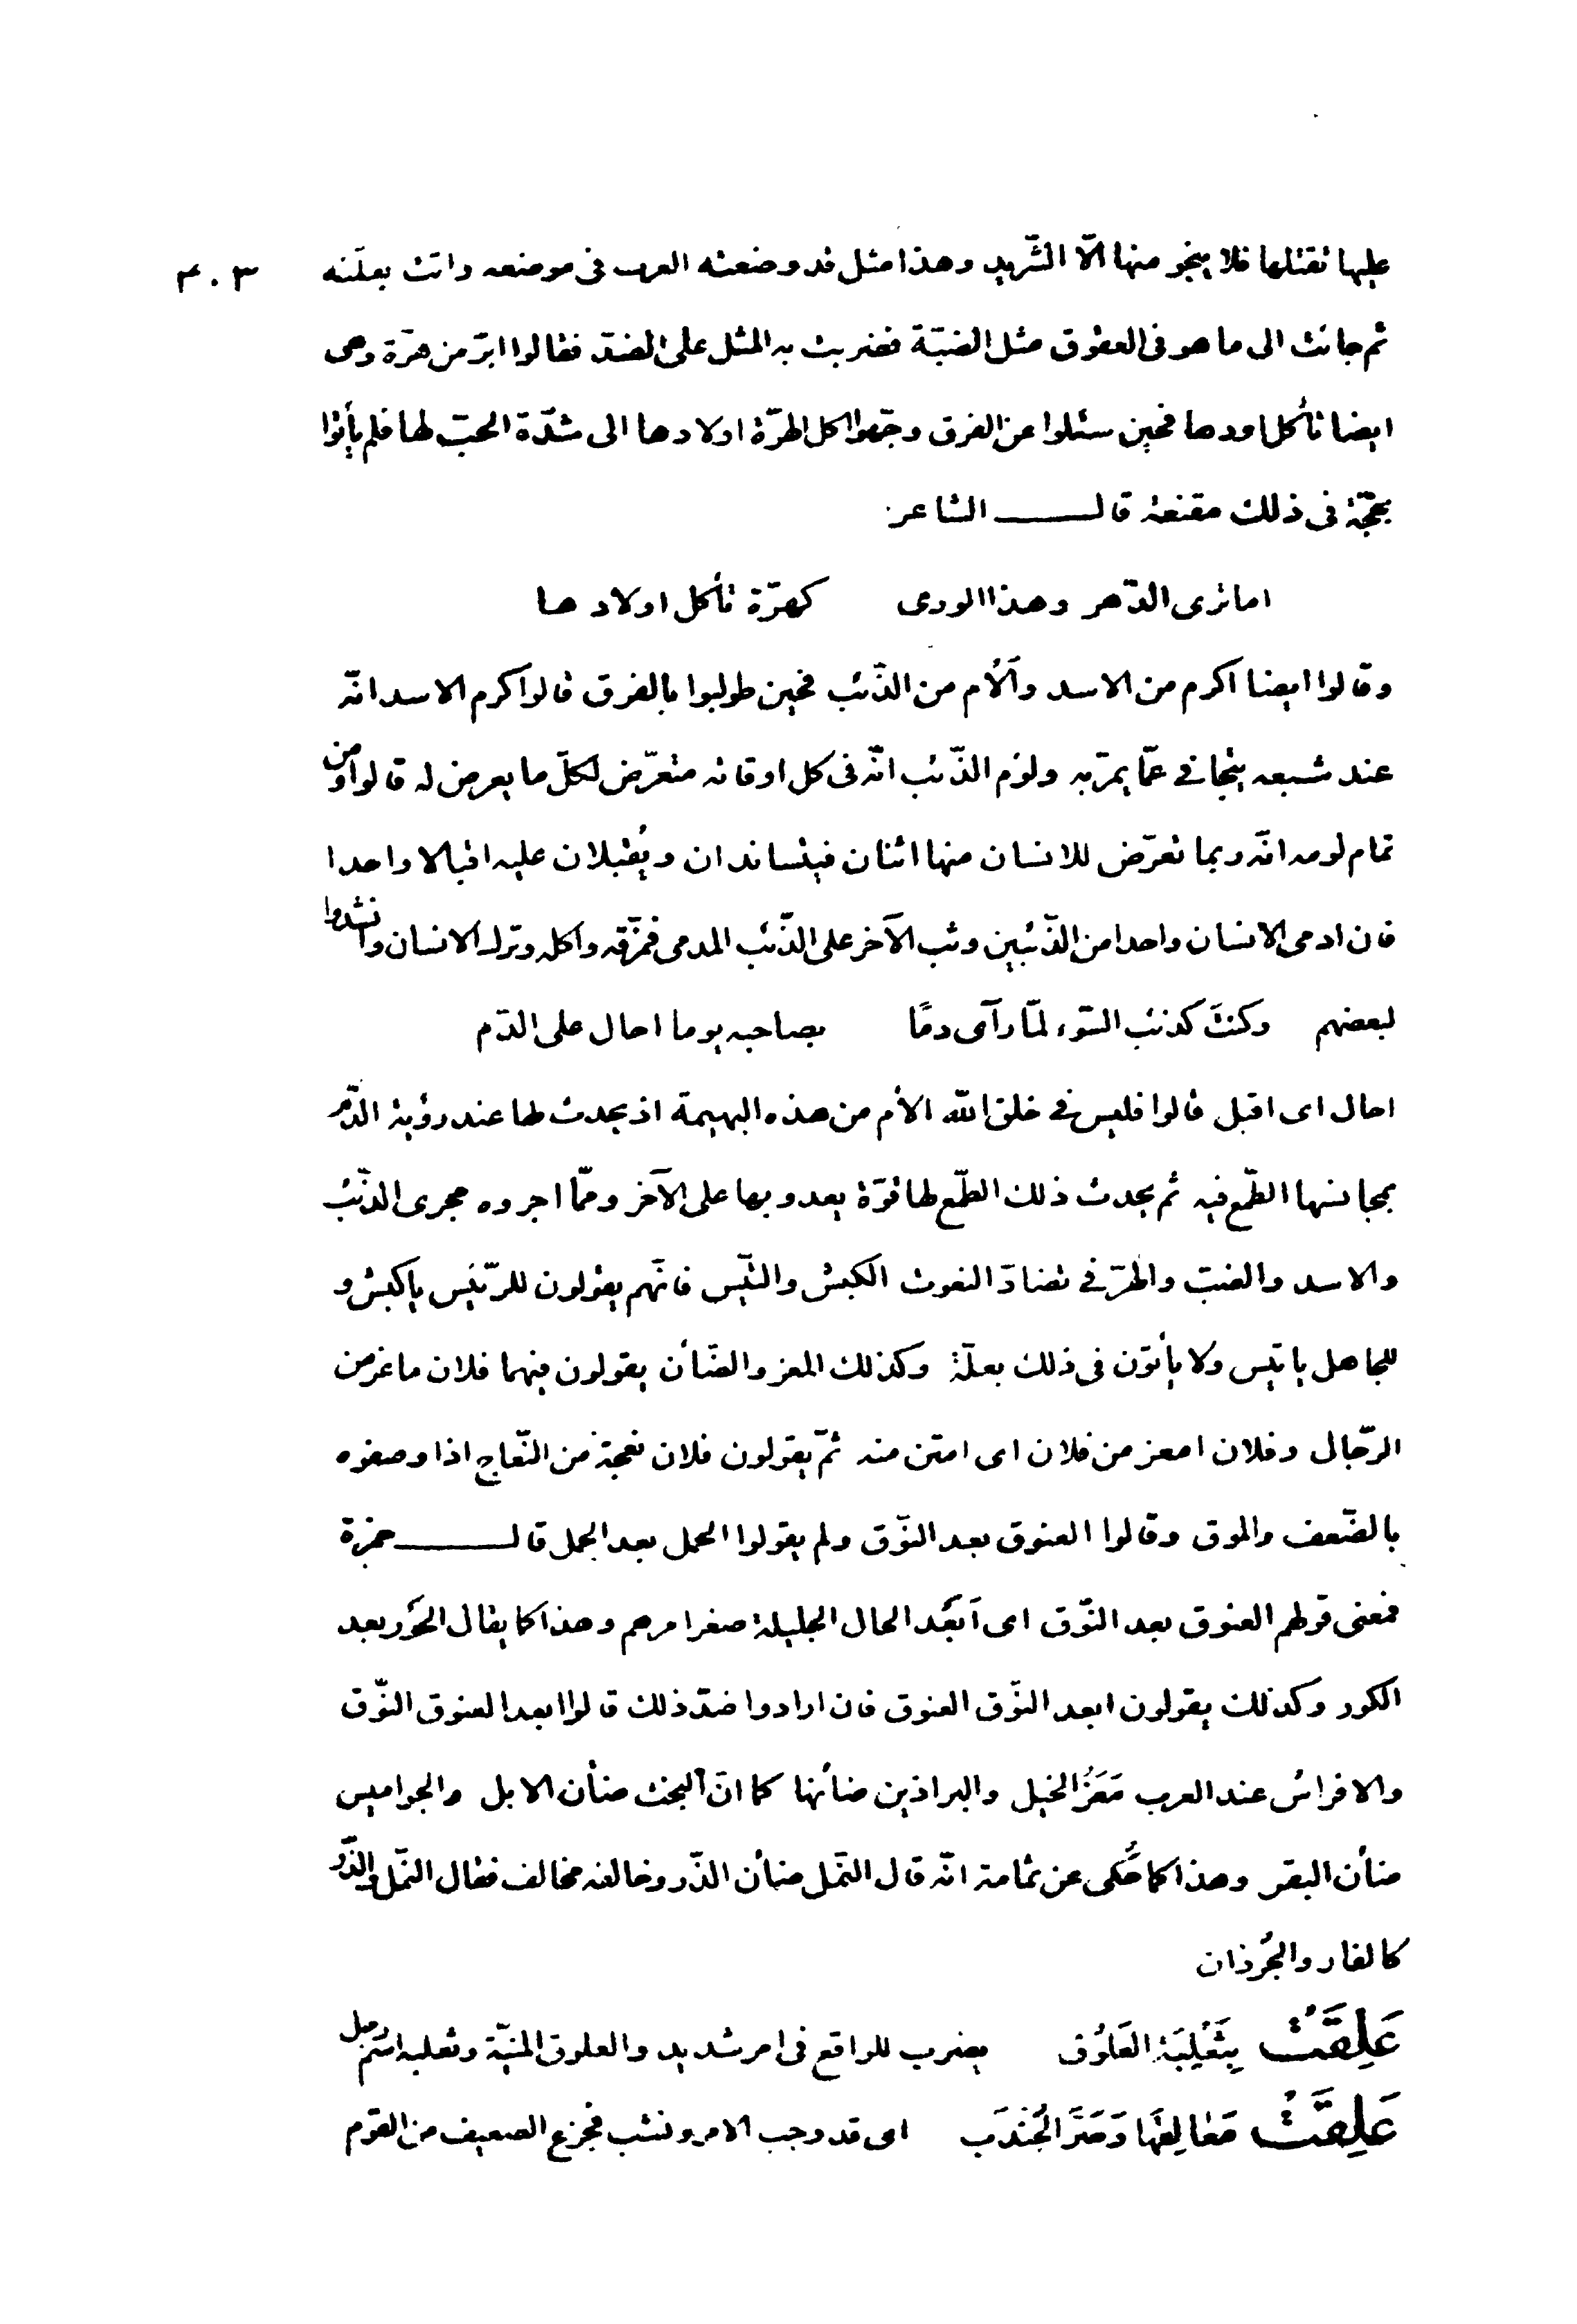 عليها تقتلها فلا ينجو منها الّا الشّريد وهذا مثل قد وضعته العرب فى موضعه واتت بعلّته ٣٠٣
ثم جائت الى ما هو فى العقوق مثل الضبّة فضربت به المثل على الضدّ فقالوا ابرّ من هرّة وهى
ايضا تأكل اودها فحين سئلوا عن الفرق وجّهوا اكل الهرّة اولادها الى شدّة الحبّ لها فلم يأتوا
بحجّة فى ذلك مقنعة قال الشاعر
اما ترى الدّهر وهذا الورى كهرّة تأكل اولادها
وقالوا ايضا اكرم من الاسد وألأم من الذّئب فحين طولبوا بالفرق قالوا كرم الاسد انّه
عند شبعه يتجافى عمّا يمرّ به ولؤم الذّئب انّه فى كل اوقاته متعرّض لكلّ ما يعرض له قالوا ومن
تمام لومه انّه ربما تعرّض للانسان منها اثنان فيتساندان ويُقبلان عليه اقبالا واحدا
فان ادمى الانسان واحدا من الذّئبين وثب الآخر على الذّئب المدمى فمزّقه واكله وترك الانسان وانشدوا
لبعضهم وكنتَ كذئب السّوء لمّا رآى دمًا بصاحبه يوما احال على الدّم
احال اى اقبل قالوا فليس فى خلق الله الأم من هذه البهيمة اذ يحدث لها عند رؤية الدّم
بمجانسها الطّمع فيه ثم يحدث ذلك الطّمع لها قوّة يعدو بها على الآخر وممّا اجروه مجرى الذّئب
والاسد والضبّ والهرّ فى تضادّ النعوت الكبش والتّيس فانّهم يقولون للرّئيس يا كبش و
للجاهل يا تيس ولا يأتون فى ذلك بعلّة وكذلك المعز والضّأن يقولون فيهما فلان ماعز من
الرّجال وفلان امعز من فلان اى امتن منه ثمّ يقولون فلان نعجة من النّعاج اذا وصفوه
بالضّعف والموق وقالوا العنوق بعد النّوق ولم يقولوا الحمل بعد الجمل قال حمزة
فمعنى قولهم العنوق بعد النّوق اى أبَعْد الحال الجليلة صغر امرهم وهذا كما يقال الحَور بعد
الكور وكذلك يقولون ابعد النّوق العنوق فان ارادوا ضدّ ذلك قالوا ابعد العنوق النّوق
والافراس عند العرب مَعَزُ الخيل والبراذين ضأنها كما انّ البخت ضأن الابل والجواميس
ضأن البقر وهذا كما حُكى عن ثمامة انّه قال النّمل ضأن الذّر وخالفه مخالف فقال النّمل والذّر
كالفار والجُرذان
عَلِقَتْ بِثَعْلَبَةَ العَلُوق يضرب للواقع فى امر شديد والعلوق المنيّة وثعلبه اسم رجل
عَلِقَتْ مَعَالِقَهَا وَصَرَّ الجُنْدَب اى قد وجب الامر ونشب فجزع الضعيف من القوم